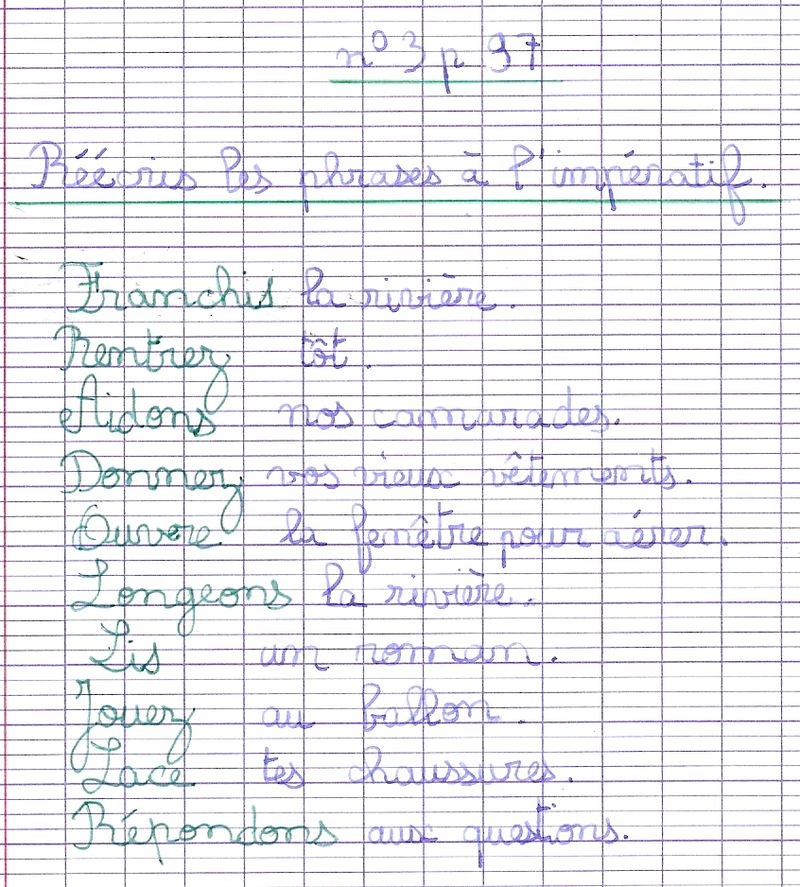 n° 3 p 97
Réécris les phrases à l'impératif.
Franchis la rivière.
Rentrez tôt.
Aidons nos camarades.
Donnez vos vieux vêtements.
Ouvre la fenêtre pour aérer.
Longeons la rivière.
Lis un roman.
Jouez au ballon.
Lace tes chaussures.
Répondons aux questions.